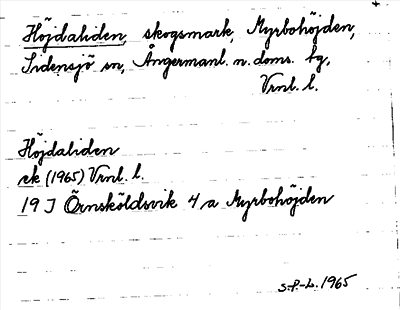 Höjdaliden, skogsmark, Myrbohöjden,
Sidensjö sn, Ångermanl. n. doms. tg,
Vrnl. l.
Höjdaliden
ek (1965) Vrnl. l.
19 J Örnsköldsvik 4 a Myrbohöjden
S.P-L. 1965